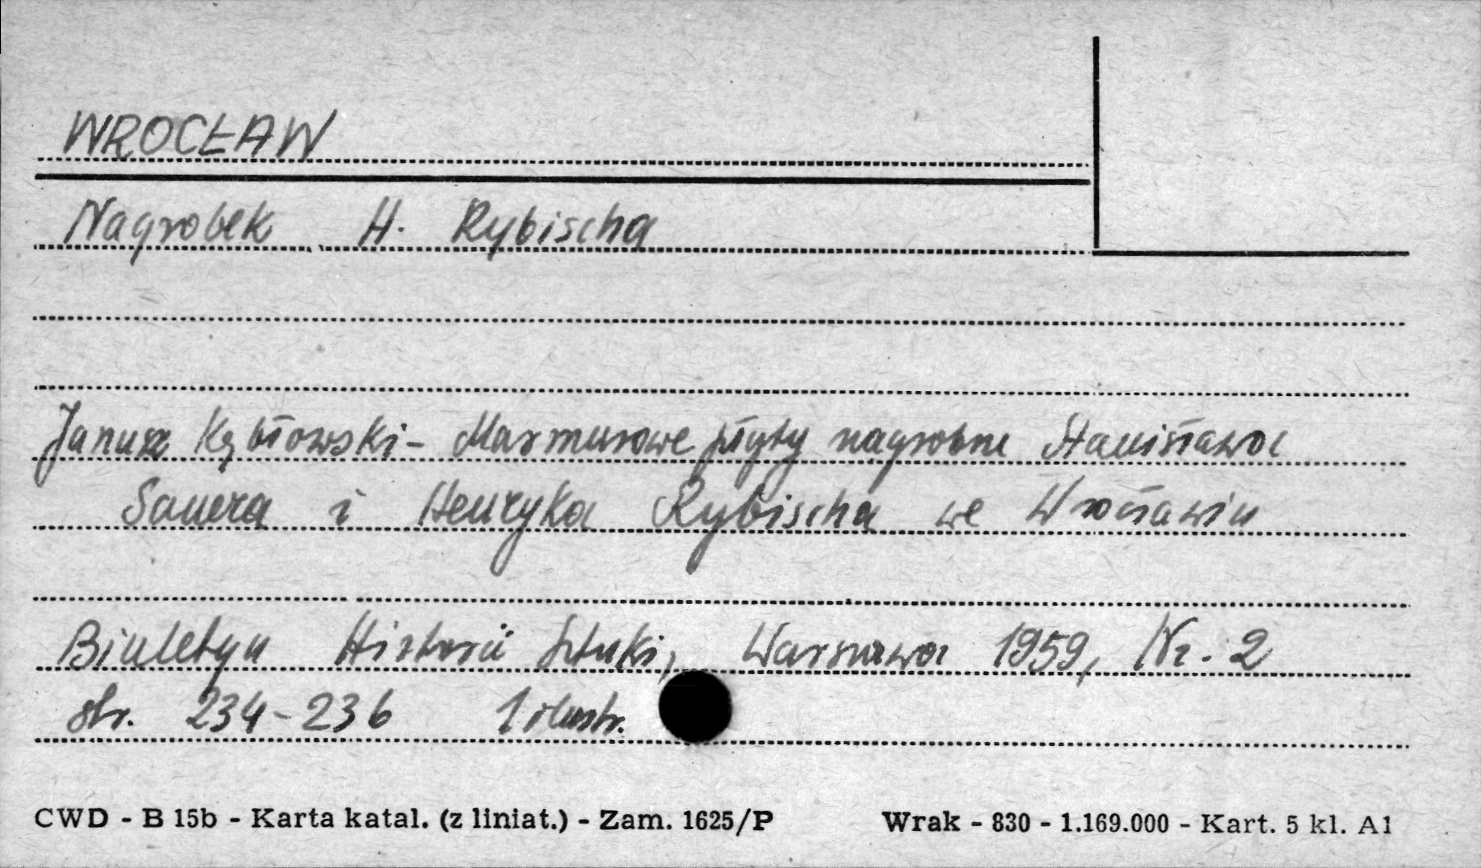 WROCŁAW
Nagrobek H. Rybischa
Janusz Kębłowski - Marmurowe płyty nagrobne Stanisława
Sauera i Henryka Rybischa we Wrocławiu
Biuletyn Historii Sztuki, Warszawa 1959, Nr. 2
str. 234-236 1 ilustr.
CWD - B 15b - Karta katal. (z liniat.) - Zam. 1625/P Wrak - 830 - 1.169.000 - Kart. 5 kl. A1